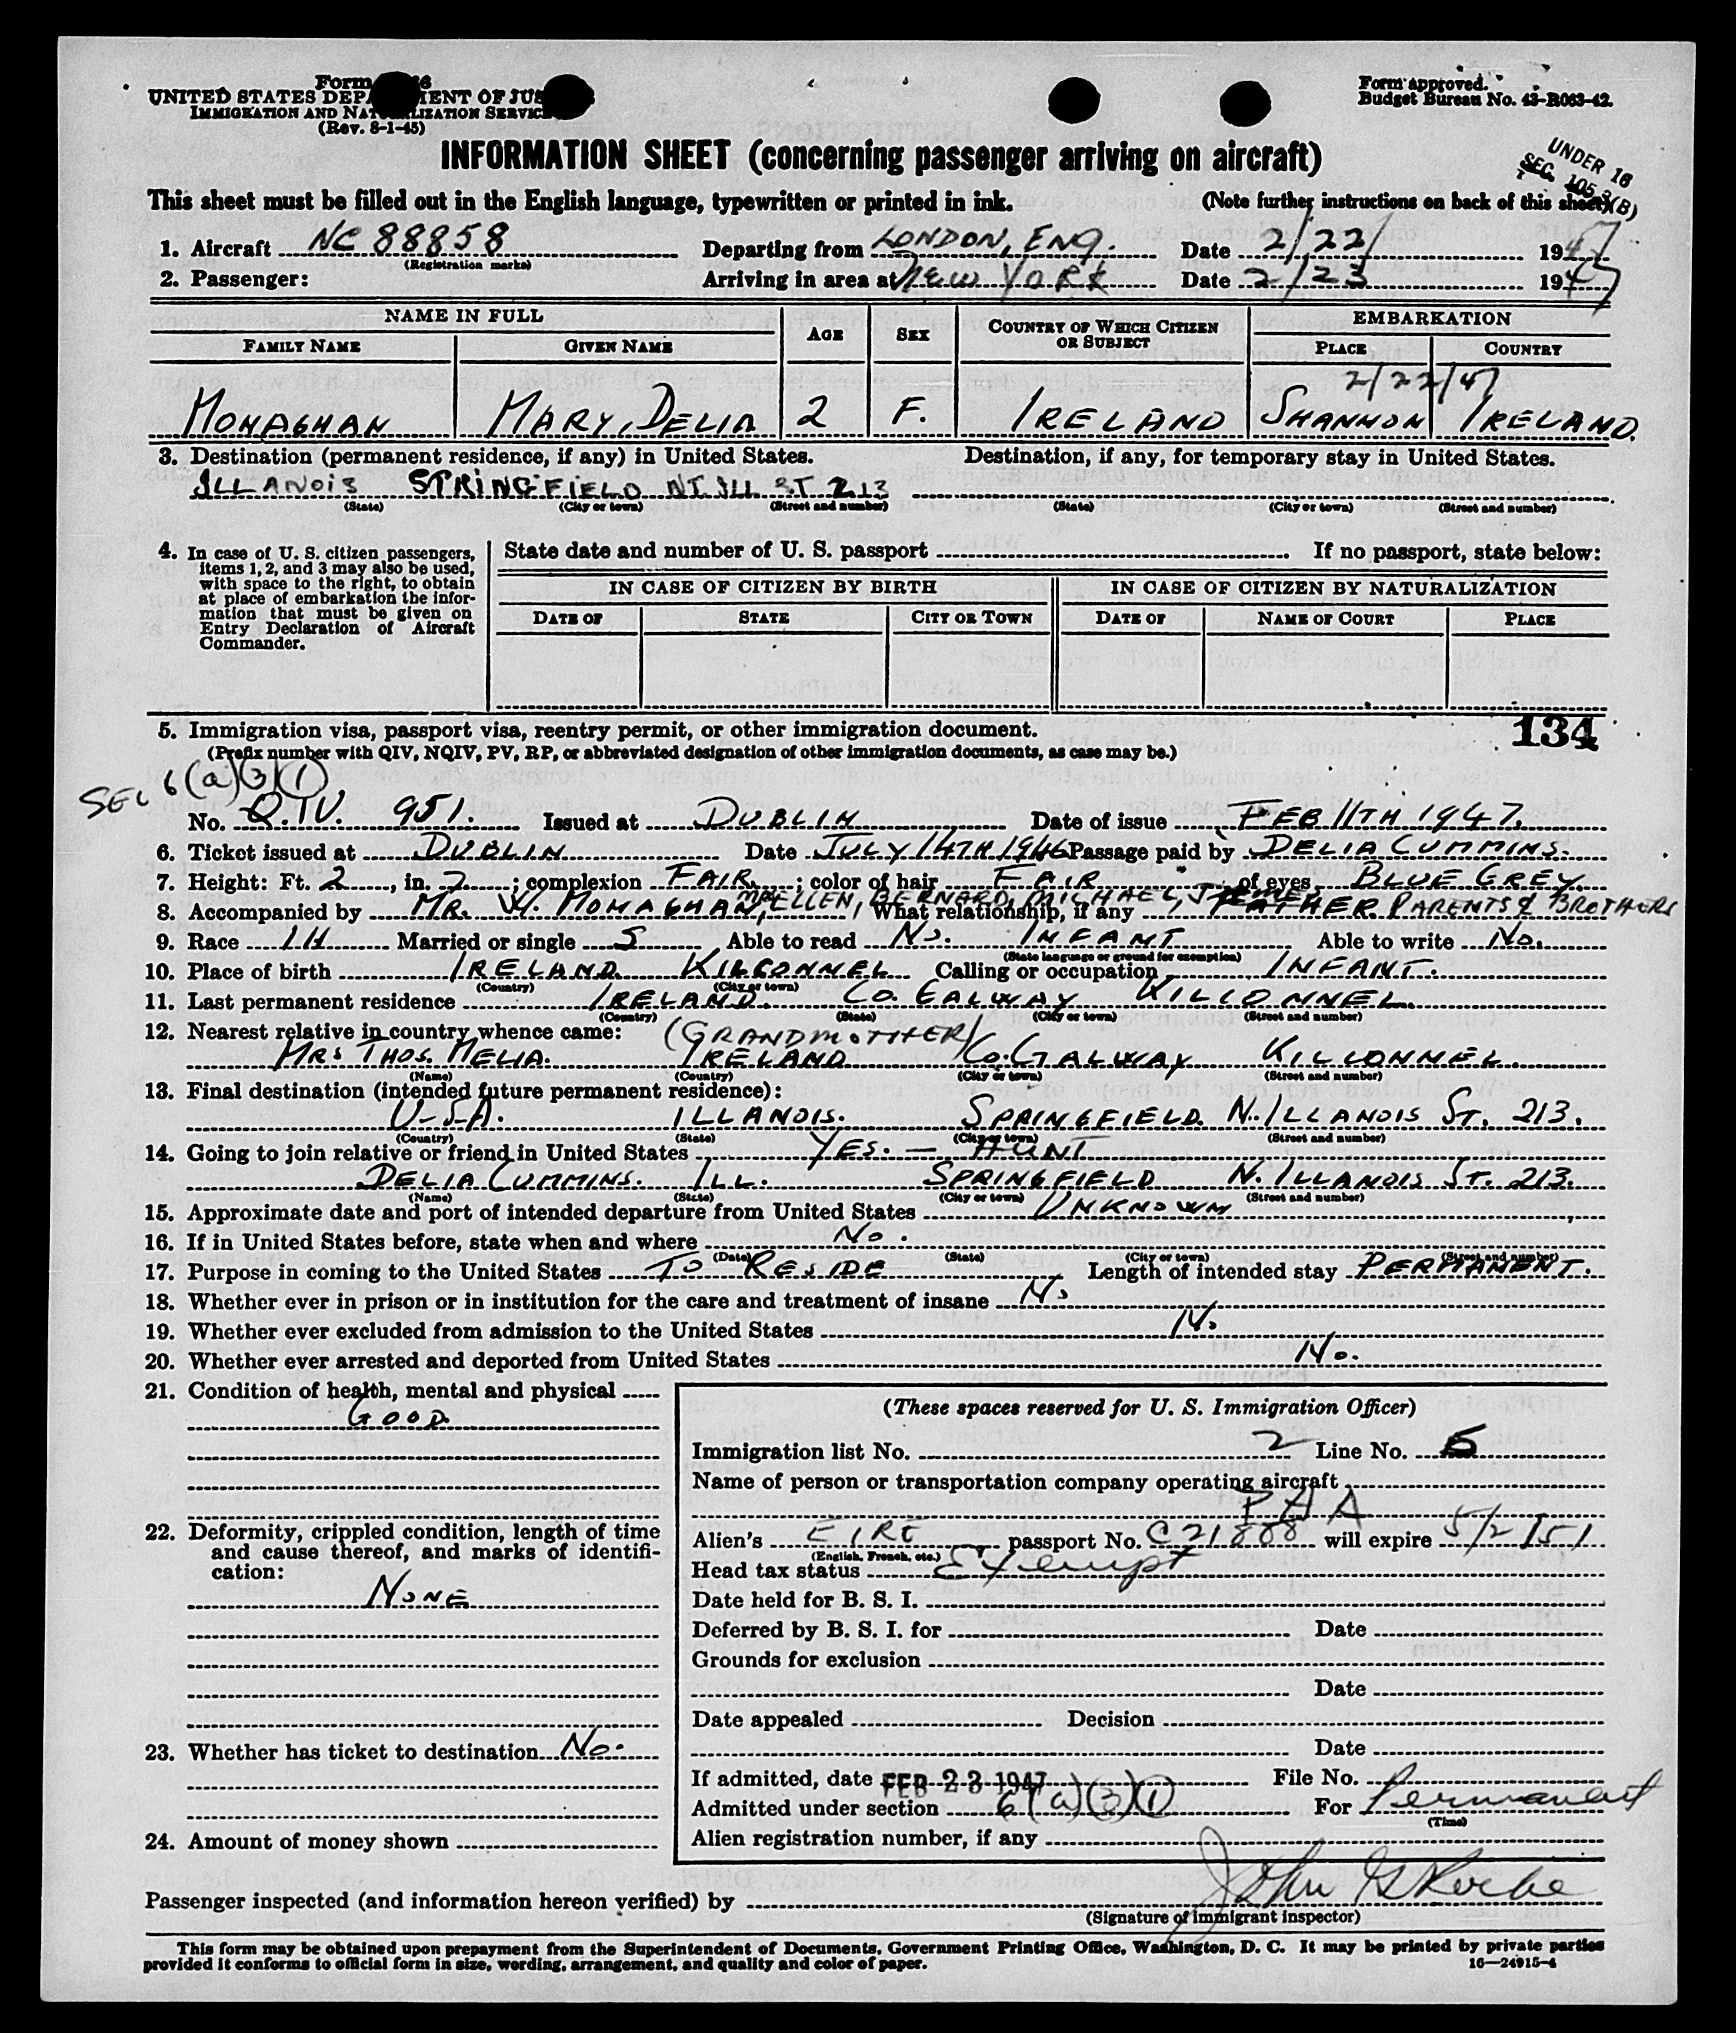 Form 66
UNITED STATES DEPA MENT OF JUS
IMMIGRATION AND NATURALIZATION SERVICE
(Rev. 8-1-45)
Form approved.
Budget Bureau No. 43-R063-42.
INFORMATION SHEET (concerning passenger arriving on aircraft)
UNDER 16
SEC. 105.3(B)
This sheet must be filled out in the English language, typewritten or printed in ink. (Note further instructions on back of this sheet)
1. Aircraft NC 88858 Departing from LONDON, ENG. Date 2/22/ 1947
(Registration marks)
2. Passenger: Arriving in area at NEW YORK Date 2/23 1947
NAME IN FULL AGE SEX COUNTRY OF WHICH CITIZEN OR SUBJECT EMBARKATION
FAMILY NAME GIVEN NAME PLACE COUNTRY
2/22/47
MONAGHAN MARY, DELIA 2 F. IRELAND SHANNON IRELAND.
3. Destination (permanent residence, if any) in United States. Destination, if any, for temporary stay in United States.
ILLANOIS SPRINGFIELD NT. ILL ST 213
(State) (City or town) (Street and number) (State) (City or town) (Street and number)
4. In case of U. S. citizen passengers, items 1, 2, and 3 may also be used, with space to the right, to obtain at place of embarkation the information that must be given on Entry Declaration of Aircraft Commander.
State date and number of U. S. passport If no passport, state below:
IN CASE OF CITIZEN BY BIRTH IN CASE OF CITIZEN BY NATURALIZATION
DATE OF STATE CITY OR TOWN DATE OF NAME OF COURT PLACE
5. Immigration visa, passport visa, reentry permit, or other immigration document. 134
(Prefix number with QIV, NQIV, PV, RP, or abbreviated designation of other immigration documents, as case may be.)
SEC 6(a)(3)(1)
No. Q.IV. 951. Issued at DUBLIN Date of issue FEB 11TH 1947.
6. Ticket issued at DUBLIN Date JULY 14TH 1946 Passage paid by DELIA CUMMINS.
7. Height: Ft. 2, in. 7; complexion FAIR; color of hair FAIR of eyes BLUE GREY.
MRS ELLEN, BERNARD, MICHAEL,
8. Accompanied by MR. W. MONAGHAN, What relationship, if any FATHER PARENTS & BROTHERS
9. Race IH Married or single S Able to read NO. INFANT Able to write NO.
(State language or ground for exemption)
10. Place of birth IRELAND KILCONNEL Calling or occupation INFANT.
(Country) (City or town)
11. Last permanent residence IRELAND. CO. GALWAY KILLONNEL.
(Country) (State) (City or town) (Street and number)
12. Nearest relative in country whence came: (GRANDMOTHER)
MRS THOS. MELIA. IRELAND CO. GALWAY KILLONNEL.
(Name) (Country) (City or town) (Street and number)
13. Final destination (intended future permanent residence):
U-S.A. ILLANOIS. SPRINGFIELD. N. ILLANOIS ST. 213.
(Country) (State) (City or town) (Street and number)
14. Going to join relative or friend in United States YES. — AUNT
DELIA CUMMINS. ILL. SPRINGFIELD N. ILLANOIS ST. 213.
(Name) (State) (City or town) (Street and number)
15. Approximate date and port of intended departure from United States UNKNOWN
16. If in United States before, state when and where NO.
(Date) (State) (City or town) (Street and number)
17. Purpose in coming to the United States TO RESIDE Length of intended stay PERMANENT.
18. Whether ever in prison or in institution for the care and treatment of insane NO
19. Whether ever excluded from admission to the United States NO
20. Whether ever arrested and deported from United States NO.
21. Condition of health, mental and physical
GOOD
22. Deformity, crippled condition, length of time and cause thereof, and marks of identification:
NONE
23. Whether has ticket to destination NO.
24. Amount of money shown
(These spaces reserved for U. S. Immigration Officer)
Immigration list No. 2 Line No. 5
Name of person or transportation company operating aircraft
PAA
Alien's EIRE passport No. C 21888 will expire 5/2/51
(English, French, etc.)
Head tax status Exempt
Date held for B. S. I.
Deferred by B. S. I. for Date
Grounds for exclusion
Date
Date appealed Decision
Date
If admitted, date FEB 23 1947 File No.
Admitted under section 6(a)(3)(1) For Permanent
(Time)
Alien registration number, if any
Passenger inspected (and information hereon verified) by John
(Signature of immigrant inspector)
This form may be obtained upon prepayment from the Superintendent of Documents, Government Printing Office, Washington, D. C. It may be printed by private parties
provided it conforms to official form in size, wording, arrangement, and quality and color of paper. 16—24915-4